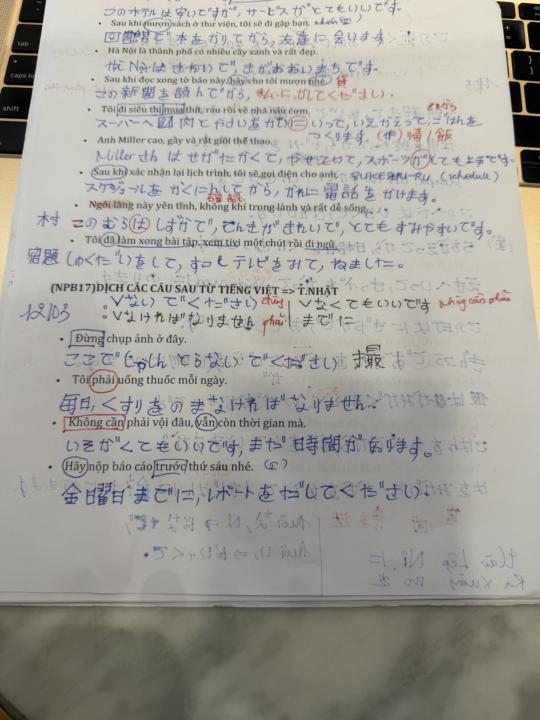 このホテルは安いですが、サービスがとてもいいです。
• Sau khi mượn sách ở thư viện, tôi sẽ đi gặp bạn.
図書館で本をかりてから、友達に会います。
• Hà Nội là thành phố có nhiều cây xanh và rất đẹp.
• Sau khi đọc xong tờ báo này, hãy cho tôi mượn nhé. 貸
この新聞を読んでから、私にかしてください。
• Tôi đi siêu thị mua thịt, rau rồi về nhà nấu cơm.
スーパーへ 肉とやさいをかいにいって、いえかえって、ごはんを
つくります。(作) 帰 / 飯
• Anh Miller cao, gầy và rất giỏi thể thao.
Millerさんはせがたかくて、やせていて、スポーツがとても上手です。
• Sau khi xác nhận lại lịch trình, tôi sẽ gọi điện cho anh.
スケジュールをかくにんしてから、かれに電話をかけます。
• Ngôi làng này yên tĩnh, không khí trong lành và rất dễ sống.
村 このむらはしずかで、でんきがきれいで、とてもすみやすいです。
• Tôi đã làm xong bài tập, xem tivi một chút rồi đi ngủ.
宿題 しゅくだいをして、ずっとテレビをみて、ねました。
(NPB17) DỊCH CÁC CÂU SAU TỪ TIẾNG VIỆT => T.NHẬT
12/03 : Vないでください đừng | Vなくてもいいです không cần phải
: Vなければなりません phải | までに
• Đừng chụp ảnh ở đây.
ここでしゃしんとらないでください 撮
• Tôi phải uống thuốc mỗi ngày.
毎日、くすりをのまなければなりません。
• Không cần phải vội đâu, vẫn còn thời gian mà.
いそがくてもいいです、まだ時間があります。
• Hãy nộp báo cáo trước thứ sáu nhé.
金曜日までに、レポートをだしてください。